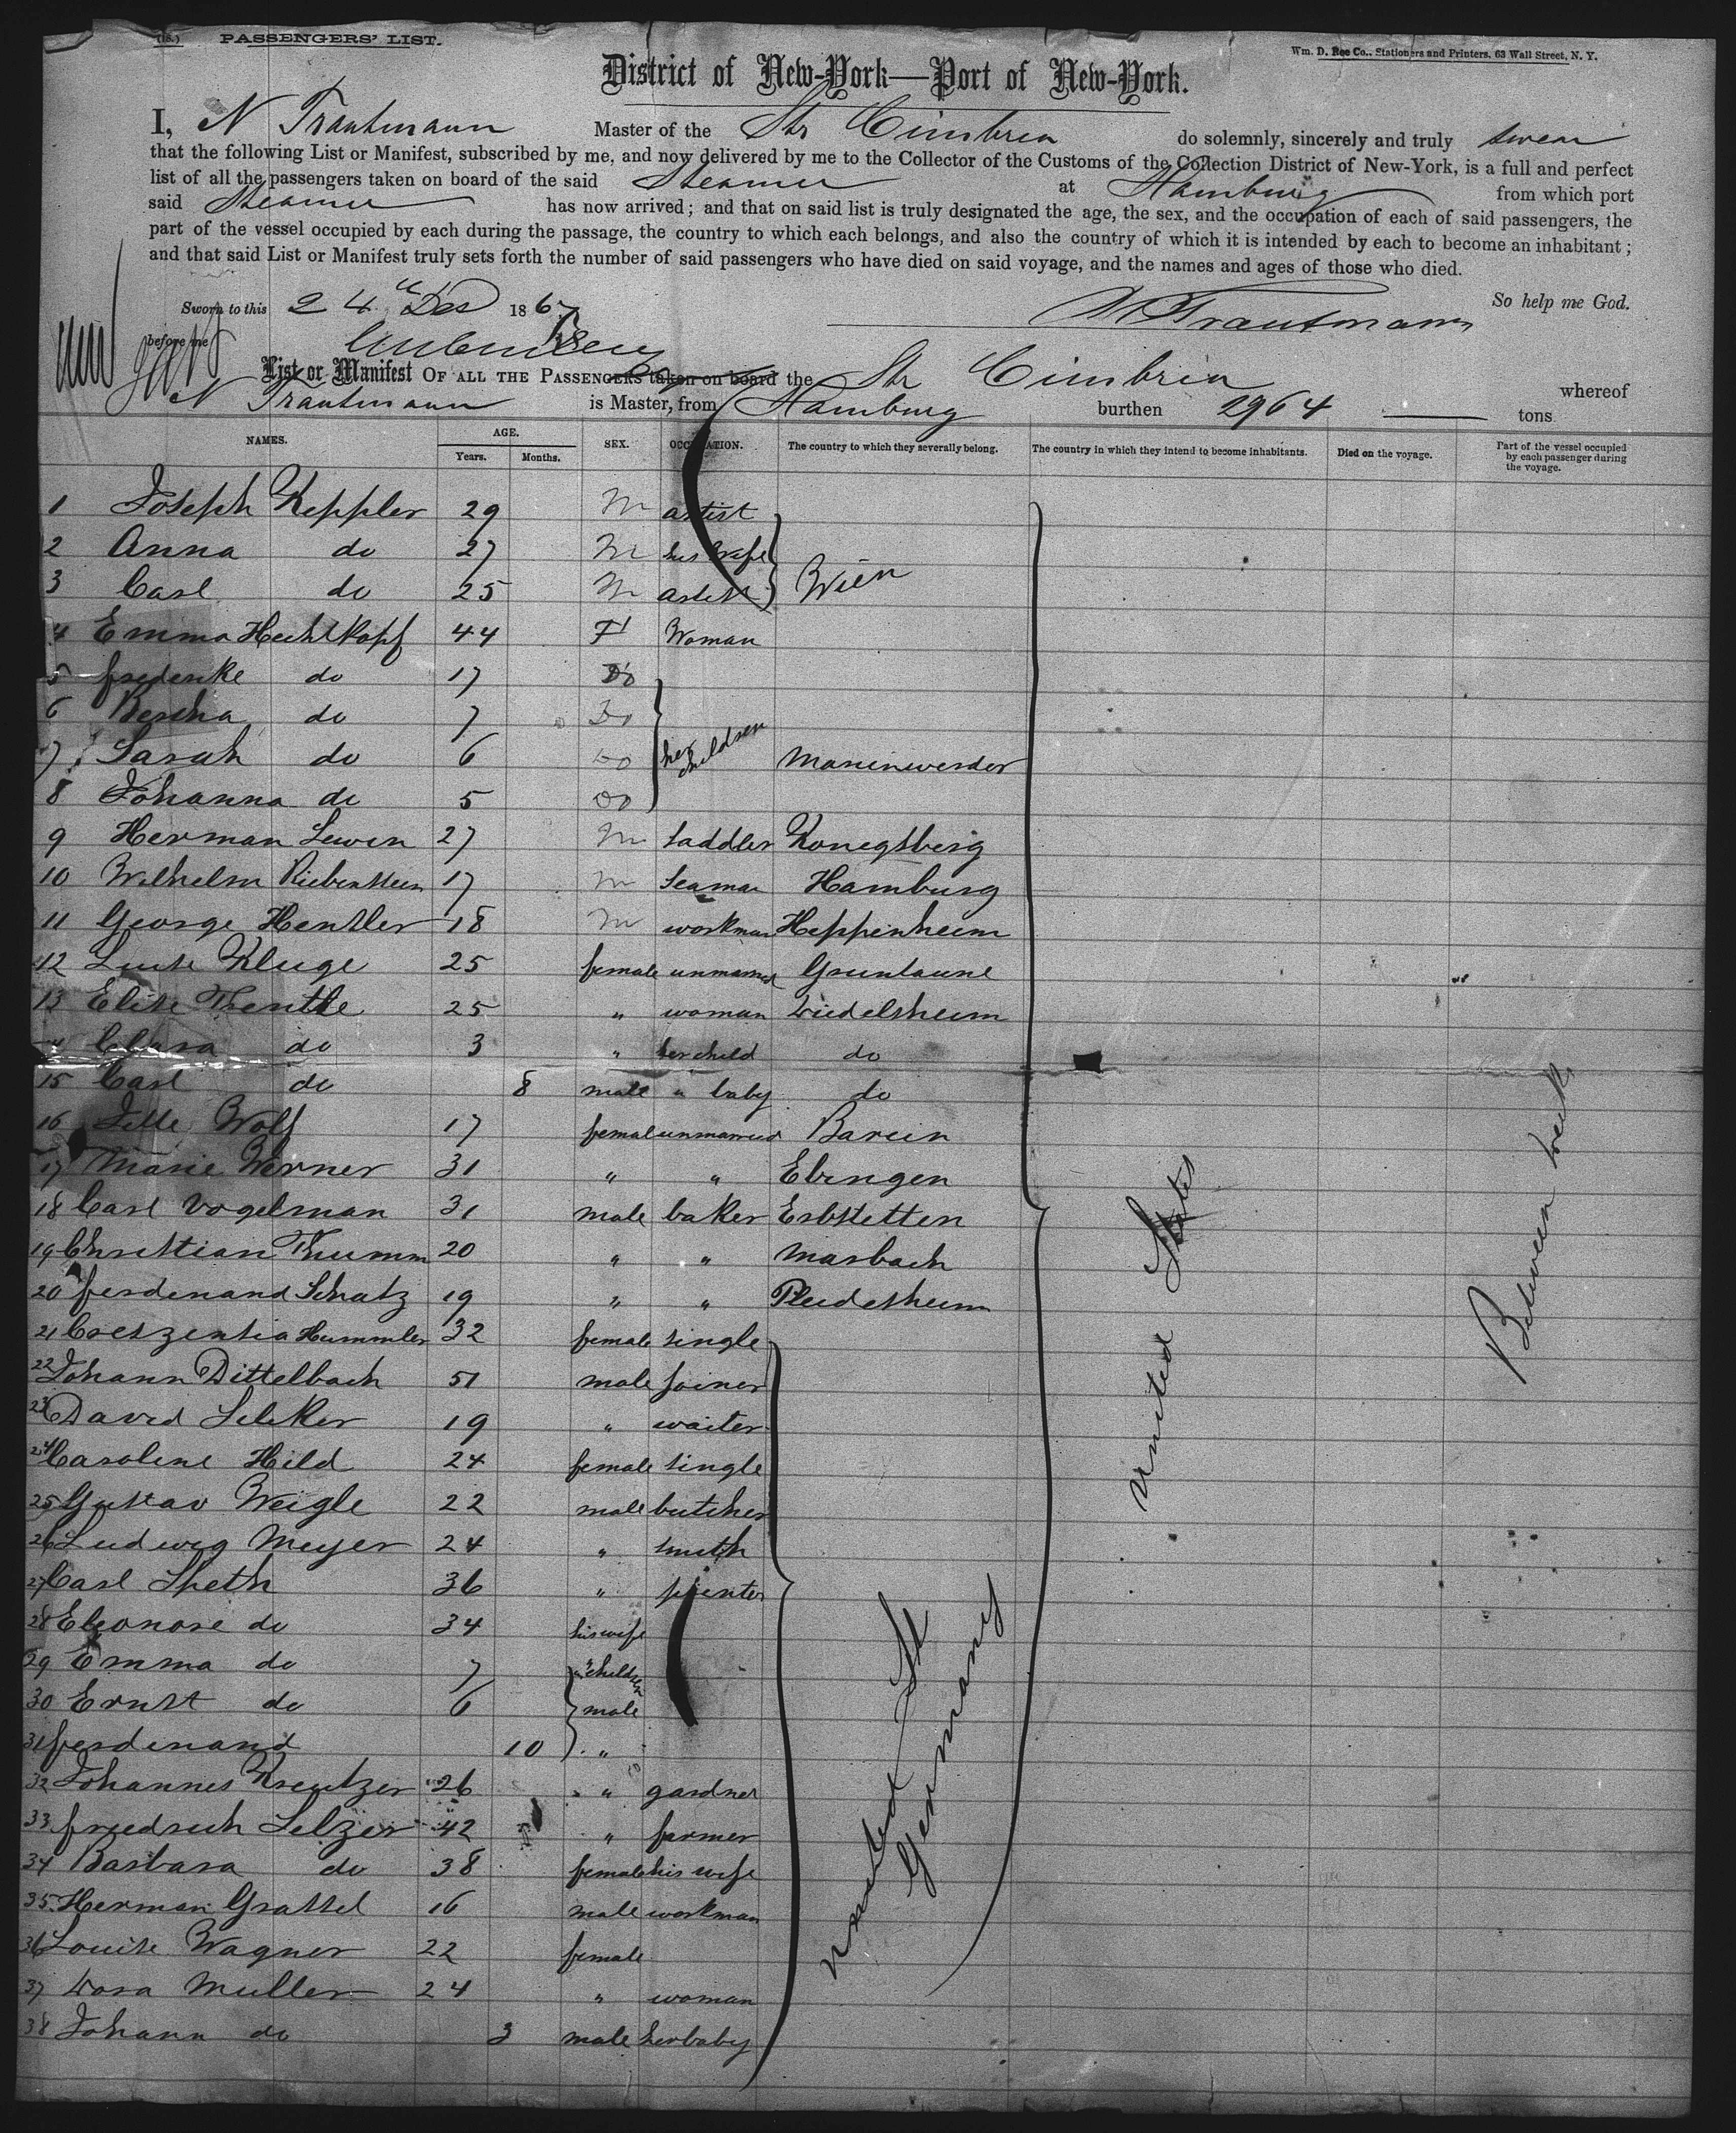 (18.) PASSENGERS' LIST.
Wm. D. Roe Co., Stationers and Printers, 63 Wall Street, N. Y.
District of New-York—Port of New-York.
I, N Trautmann Master of the Str Cimbria do solemnly, sincerely and truly swear
that the following List or Manifest, subscribed by me, and now delivered by me to the Collector of the Customs of the Collection District of New-York, is a full and perfect
list of all the passengers taken on board of the said Steamer at Hamburg from which port
said Steamer has now arrived; and that on said list is truly designated the age, the sex, and the occupation of each of said passengers, the
part of the vessel occupied by each during the passage, the country to which each belongs, and also the country of which it is intended by each to become an inhabitant;
and that said List or Manifest truly sets forth the number of said passengers who have died on said voyage, and the names and ages of those who died.
So help me God.
Sworn to this 24th Dec 1867 N Trautmann
before me
List or Manifest OF ALL THE PASSENGERS taken on board the Str Cimbria whereof
N Trautmann is Master, from Hamburg burthen 2964 tons
NAMES. AGE. Years. Months. SEX. OCCUPATION. The country to which they severally belong. The country in which they intend to become inhabitants. Died on the voyage. Part of the vessel occupied by each passenger during the voyage.
1 Joseph Keppler 29 M artist
2 Anna do 27 M his wife
3 Carl do 25 M artist Wien
4 Emma Hechtkopf 44 F Woman
5 frederike do 17 Do
6 Bertha do 7 Do
7 Sarah do 6 Do her children Marienwerder
8 Johanna do 5 Do
9 Herman Lewin 27 M Saddler Konegsberg
10 Wilhelm 17 M Seaman Hamburg
11 George Hentler 18 M workman Heppenheim
12 Kluge 25 female unmarried
13 Elise 25 " woman
14 Clara do 3 " her child do
15 Carl do 8 male " baby do
16 Wolf 17 female unmarried
17 Marie Werner 31 " " Ebingen
18 Carl Vogelman 31 male baker Erbstetten
19 Christian Thumm 20 " " Marbach
20 ferdenand Schatz 19 " " Pleidesheim
21 Creszentia Hummler 32 female single
22 Johann Dittelbach 51 male joiner
23 David 19 " waiter
24 Caroline Hild 24 female single
25 Gustav Weigle 22 male butcher
26 Ludwig Meyer 24 " smith
27 Carl Speth 36 "
28 Eleonore do 34 his wife
29 Emma do 7 " children
30 Ernst do 6 male
31 ferdenand 10 "
32 Johannes Kreutzer 26 " gardner
33 friedrich Selzer 42 " farmer
34 Barbara do 38 female his wife
35 Herman Grassel 16 male workman
36 Louise Wagner 22 female
37 Dora Muller 24 " woman
38 Johann do 3 male her baby
Germany
United States
Between Deck